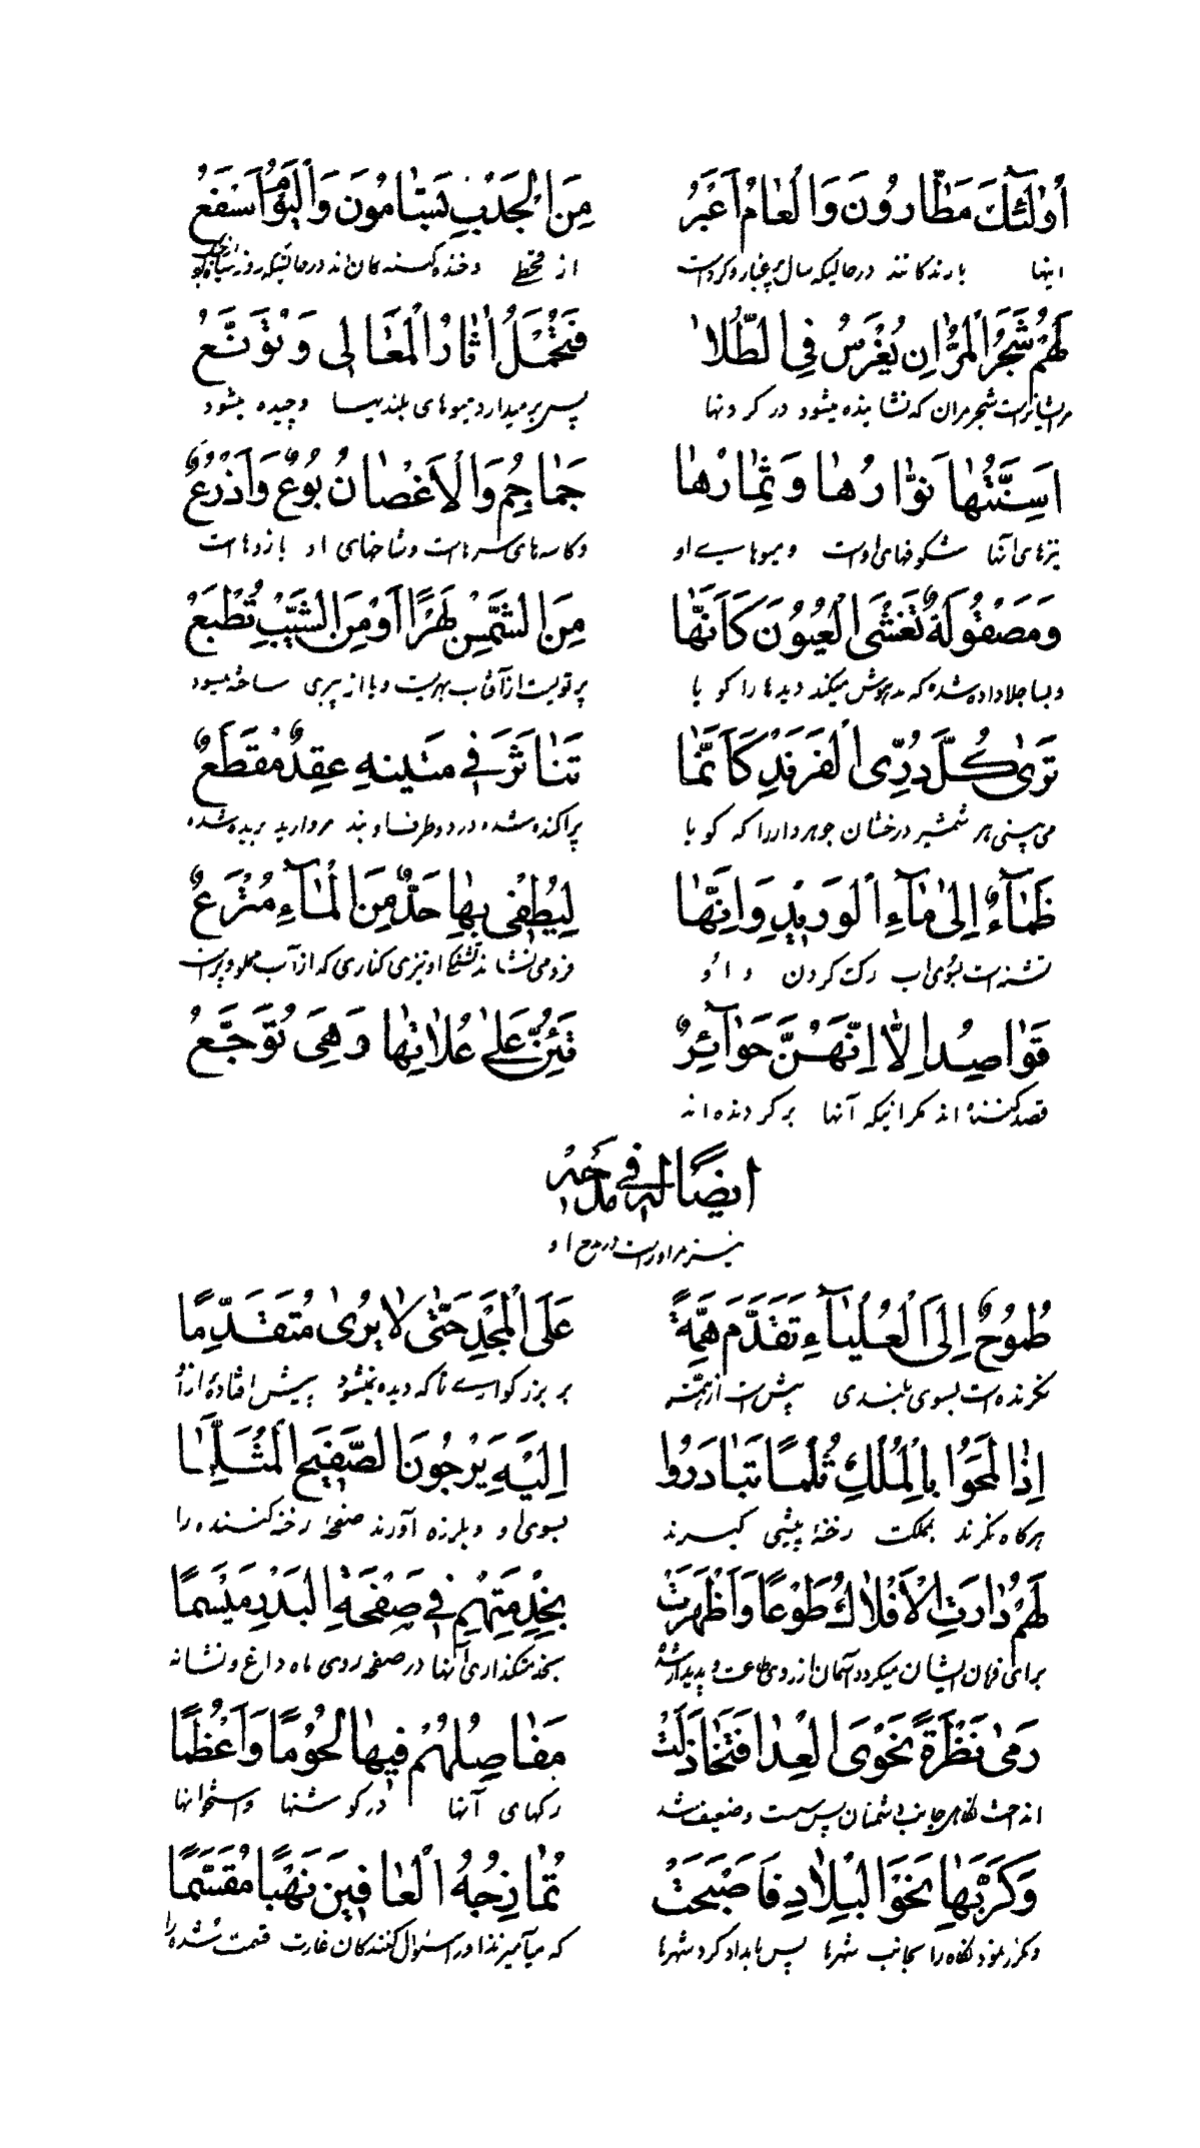 اُولٰئِكَ مَطّارُونَ وَالْعَامُ اَغْبَرُ مِنَ الْجَدْبِ بَسّامُونَ وَالْيَوْمُ اَسْفَعُ
اینها بارندکانند درحالیکه سال پرغبار وکردست از قحط وخنده کننده کان‌اند درحالیکه روز
لَهُمْ شَجَرُ الْمُرّانِ يُغْرَسُ فِي الطُّلا فَتَحْمِلُ اَثْمَارَ الْمَعَالِي وَتُوْنَعُ
مرایشانراست شجر مران که نشانیده میشود در کردنها پس برمیدارد میوهای بلندیها وچیده میشود
اَسِنَّتُهَا نَوّارُهَا وَثِمَارُهَا جَمَاجِمُ وَالْاَغْصَانُ بُوعٌ وَاَذْرُعٌ
نیزهای آنها شکوفهای اوست ومیوهایی او وکاسه‌های سرهاست وشاخهای او بازوهاست
وَمَصْقُولَةٌ تَغْشَى الْعُيُونَ كَاَنَّهَا مِنَ الشَّمْسِ بَهْرًا اَوْ مِنَ الشَّيْبِ تُطْبَعُ
وبسا جلا داده شده که مدهوش میکند دیدها را کویا پرتویست از آفتاب وبا از پیری ساخته میشود
تَرَىٰ كُلَّ دُرِّيِّ الْفِرَنْدِ كَاَنَّمَا تَنَاثَرَ فِي مَتْنَيْهِ عِقْدٌ مُقَطَّعٌ
می‌بینی هر شمشیر درخشان جوهردار را که کویا پراکنده شده در دو طرف او بند مروارید بریده شده
ظَمَآءٌ اِلَىٰ مَآءِ الْوَرِيدِ وَاِنَّهَا لَيُطْفِي بِهَا حَدٌّ مِنَ الْمَآءِ مُتْرَعٌ
تشنه‌است بسوی اب رک کردن و او فرو می‌نشاند تیزی کناری که از آب مملو
قَوَاصِدُ اِلَّا اِنَّهُنَّ حَوَآئِرٌ تَئِنُّ عَلَىٰ عُلَّاتِهَا وَهِيَ تُوجَعُ
قصد کننده‌اند مکر اینکه آنها برکردنده‌اند
اَيْضًا لَهُ فِي مَدْحِهِ
نیز مراوراست در مدح او
طَمُوحٌ اِلَى الْعَلْيَآءِ تَقَدَّمَ هِمَّةً عَلَى الْمَجْدِ حَتَّىٰ لَا يُرَىٰ مُتَقَدِّمًا
نکرنده‌است بسوی بلندی پیش است از بر بزرکواری تا که دیده نمیشود پیش افتاده از او
اِذَا لَمَحُوا بِالْمُلْكِ ثُلْمًا تَبَادَرُوا اِلَيْهِ يَرُجُّونَ الصَّفِيحَ الْمُثَلَّمَا
هرکاه نکرند بملکت رخنهٔ پیشی کیرند بسوی او وبلرزه آورند صفحهٔ رخنه کننده را
لَهُمْ دَارَتِ الْاَفْلَاكُ طَوْعًا وَاَظْهَرَتْ بِخِدْمَتِهِمْ فِي صَفْحَةِ الْبَدْرِ مَيْسَمًا
برای فرمان ایشان میکردد آسمان از روی طاعت و بخدمتکذاری آنها در صفحه روی ماه داغ ونشانه
رَمَىٰ نَظْرَةً نَحْوَ الْعِدَا فَتَخَاذَلَتْ مَفَاصِلُهُمْ فِيهَا لُحُومًا وَاَعْظُمًا
انداخت نکاهی جانب دشمنان پس سست وضعیف شد رکهای آنها در کوشتها واستخوانها
وَكَرَّبَهَا نَحْوَ الْبِلَادِ فَاَصْبَحَتْ تُمَازِجُهُ الْعَافِينَ نَهْبًا مُقَسَّمًا
ومکرر نمود نکاه را بجانب شهرها پس بامداد کرد شهرها که میآمیزند سئوال کنندکان غارت قسمت شده را